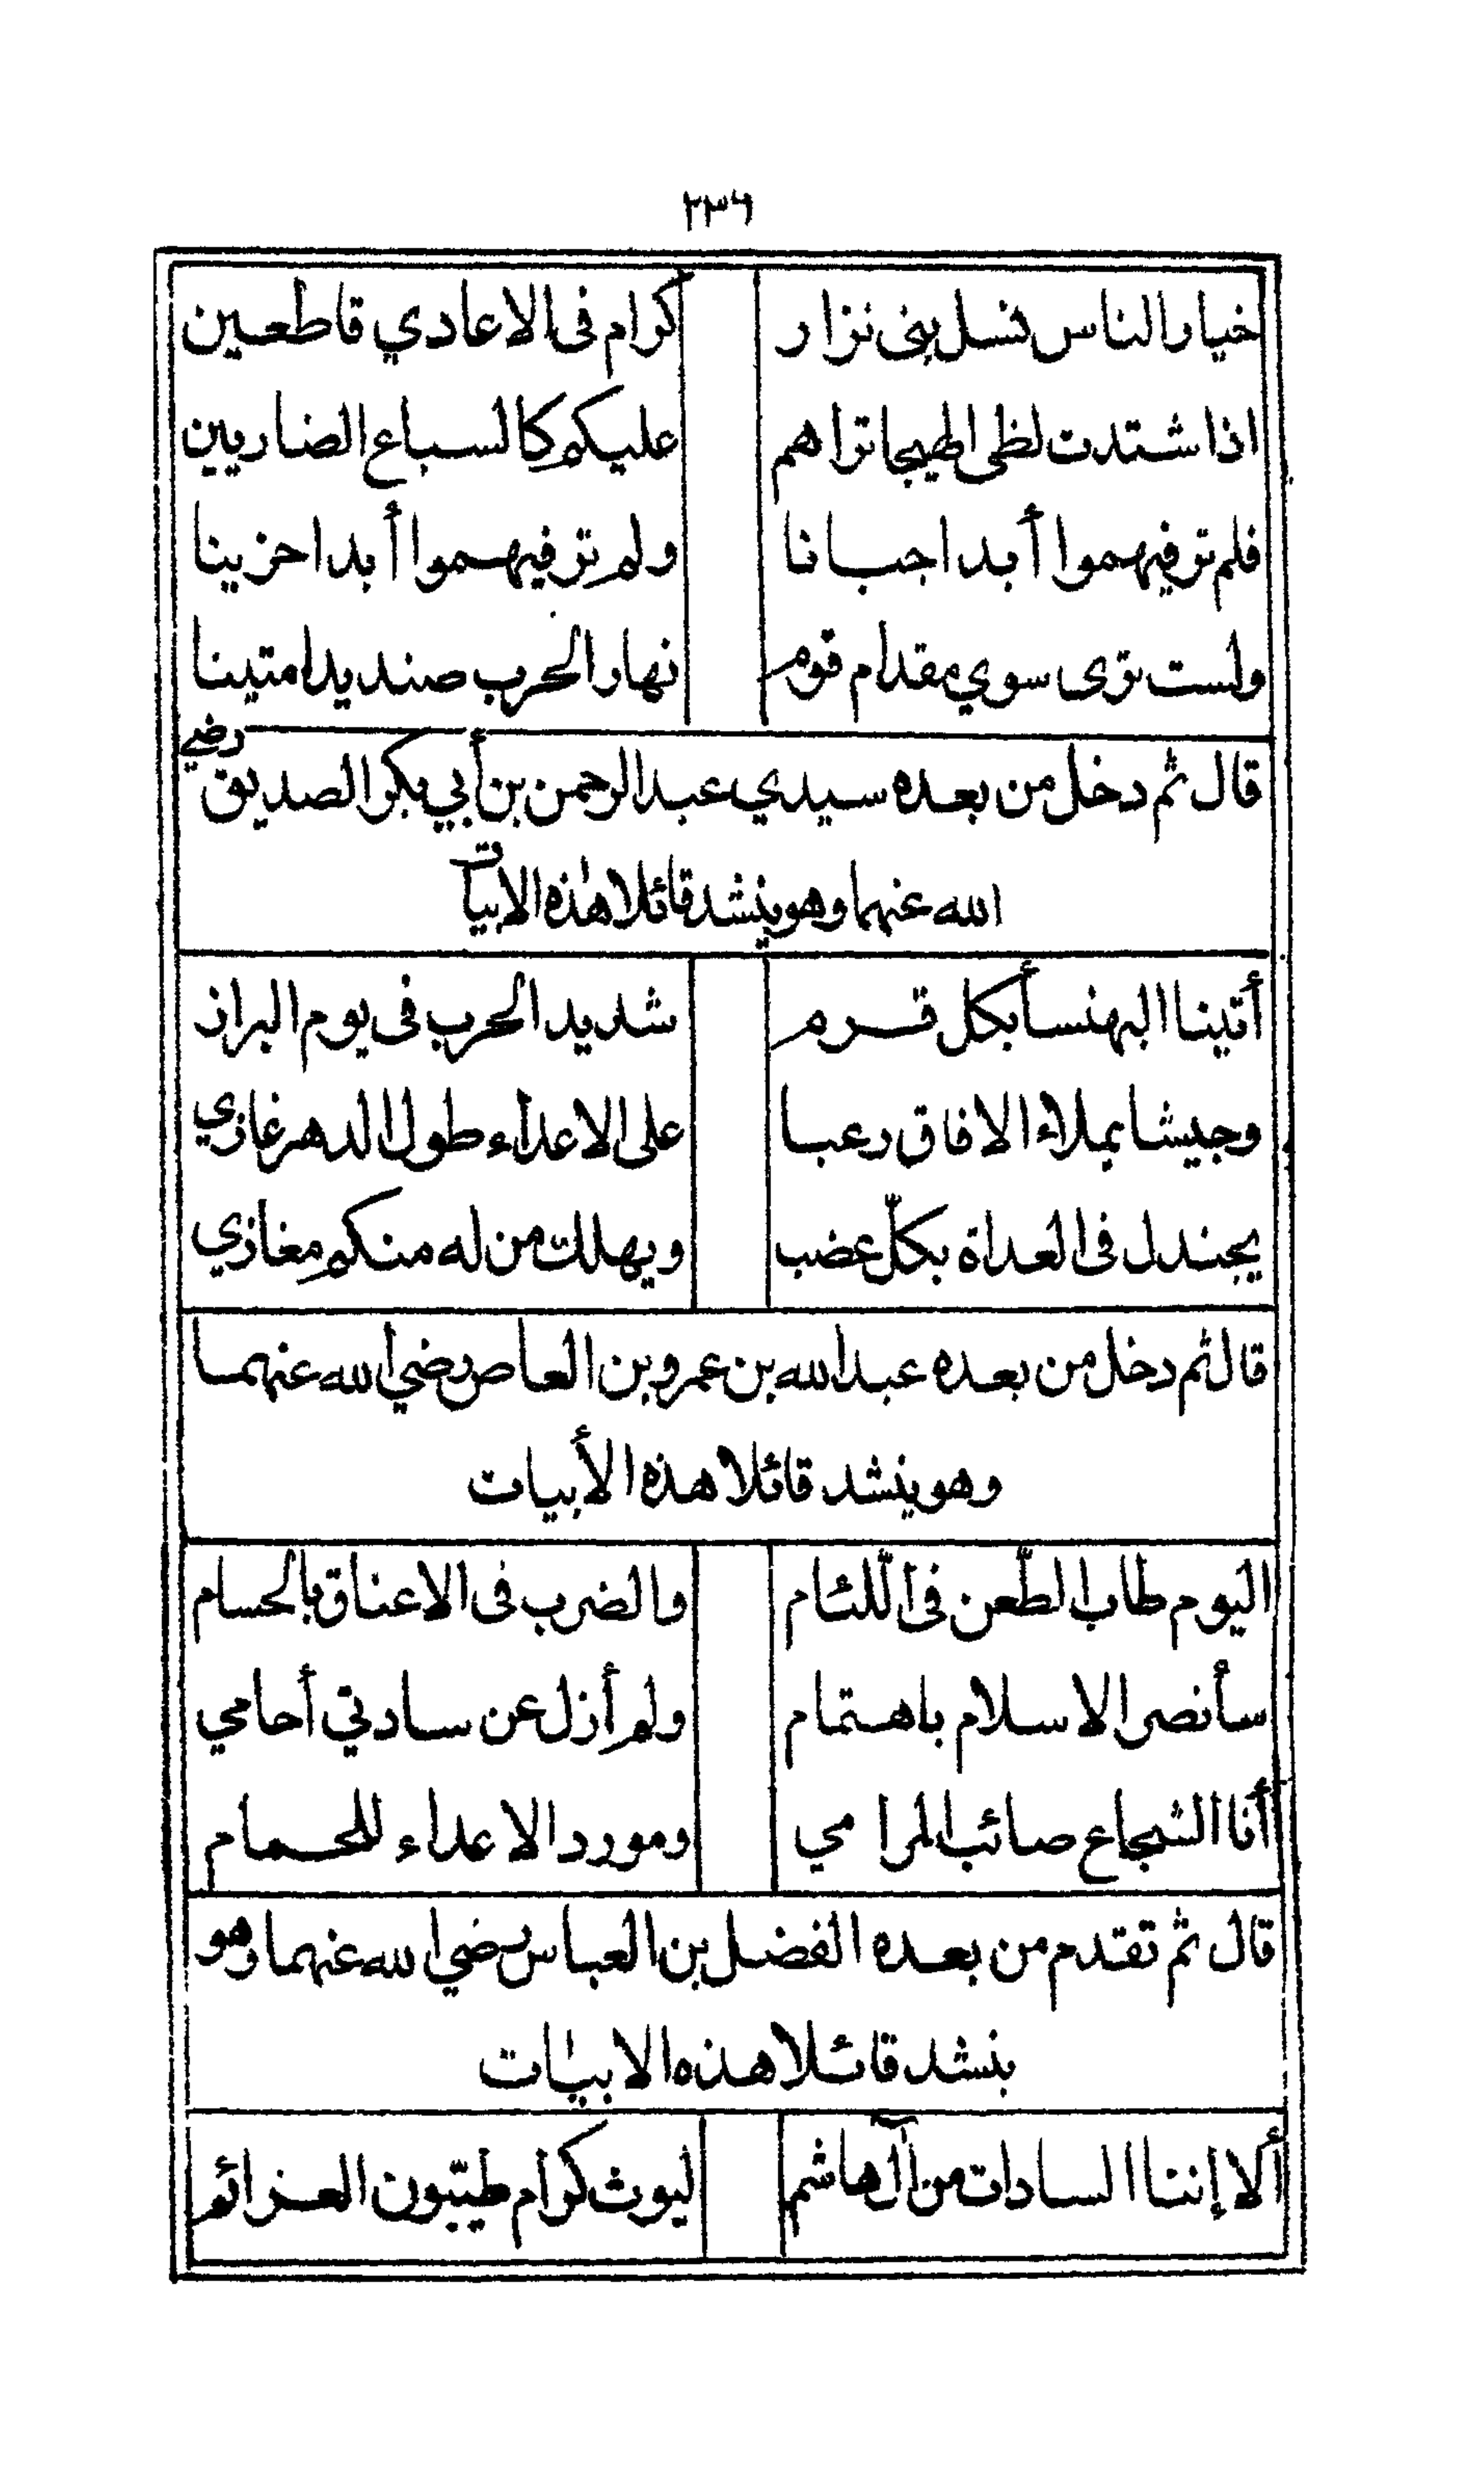 ٢٣٦
خيار الناس نسل بنى نزار كرام فى الاعادي قاطعين
اذا شتدت لظى الهيجا تراهم عليكم كالسباع الضاريين
فلم تر فيهموا أبدا جبانا ولم تر فيهموا أبدا حزينا
ولست ترى سوي مقدام قوم نهار الحرب صنديدا متينا
قال ثم دخل من بعده سيدي عبد الرحمن بن أبي بكر الصديق رضي
الله عنهما وهو ينشد قائلا هٰذه الابيات
أتينا البهنسا بكل قرم شديد الحرب فى يوم البراز
وجيشا يملاء الافاق رعبا على الاعداء طول الدهر غازي
يجندل فى العداة بكلّ عضب ويهلك من له منكم مغازي
قال ثم دخل من بعده عبد الله بن عمرو بن العاص رضي الله عنهما
وهو ينشد قائلا هذه الأبيات
اليوم طاب الطّعن فى اللّئام والضرب فى الاعناق بالحسام
سأنصر الاسلام باهتمام ولم أزل عن سادتي أحامي
أنا الشجاع صائب المرامي ومورد الاعداء للحمام
قال ثم تقدم من بعده الفضل بن العباس رضي الله عنهما وهو
ينشد قائلا هذه الابيات
ألا إننا السادات من آل هاشم ليوث كرام طيّبون العزائم